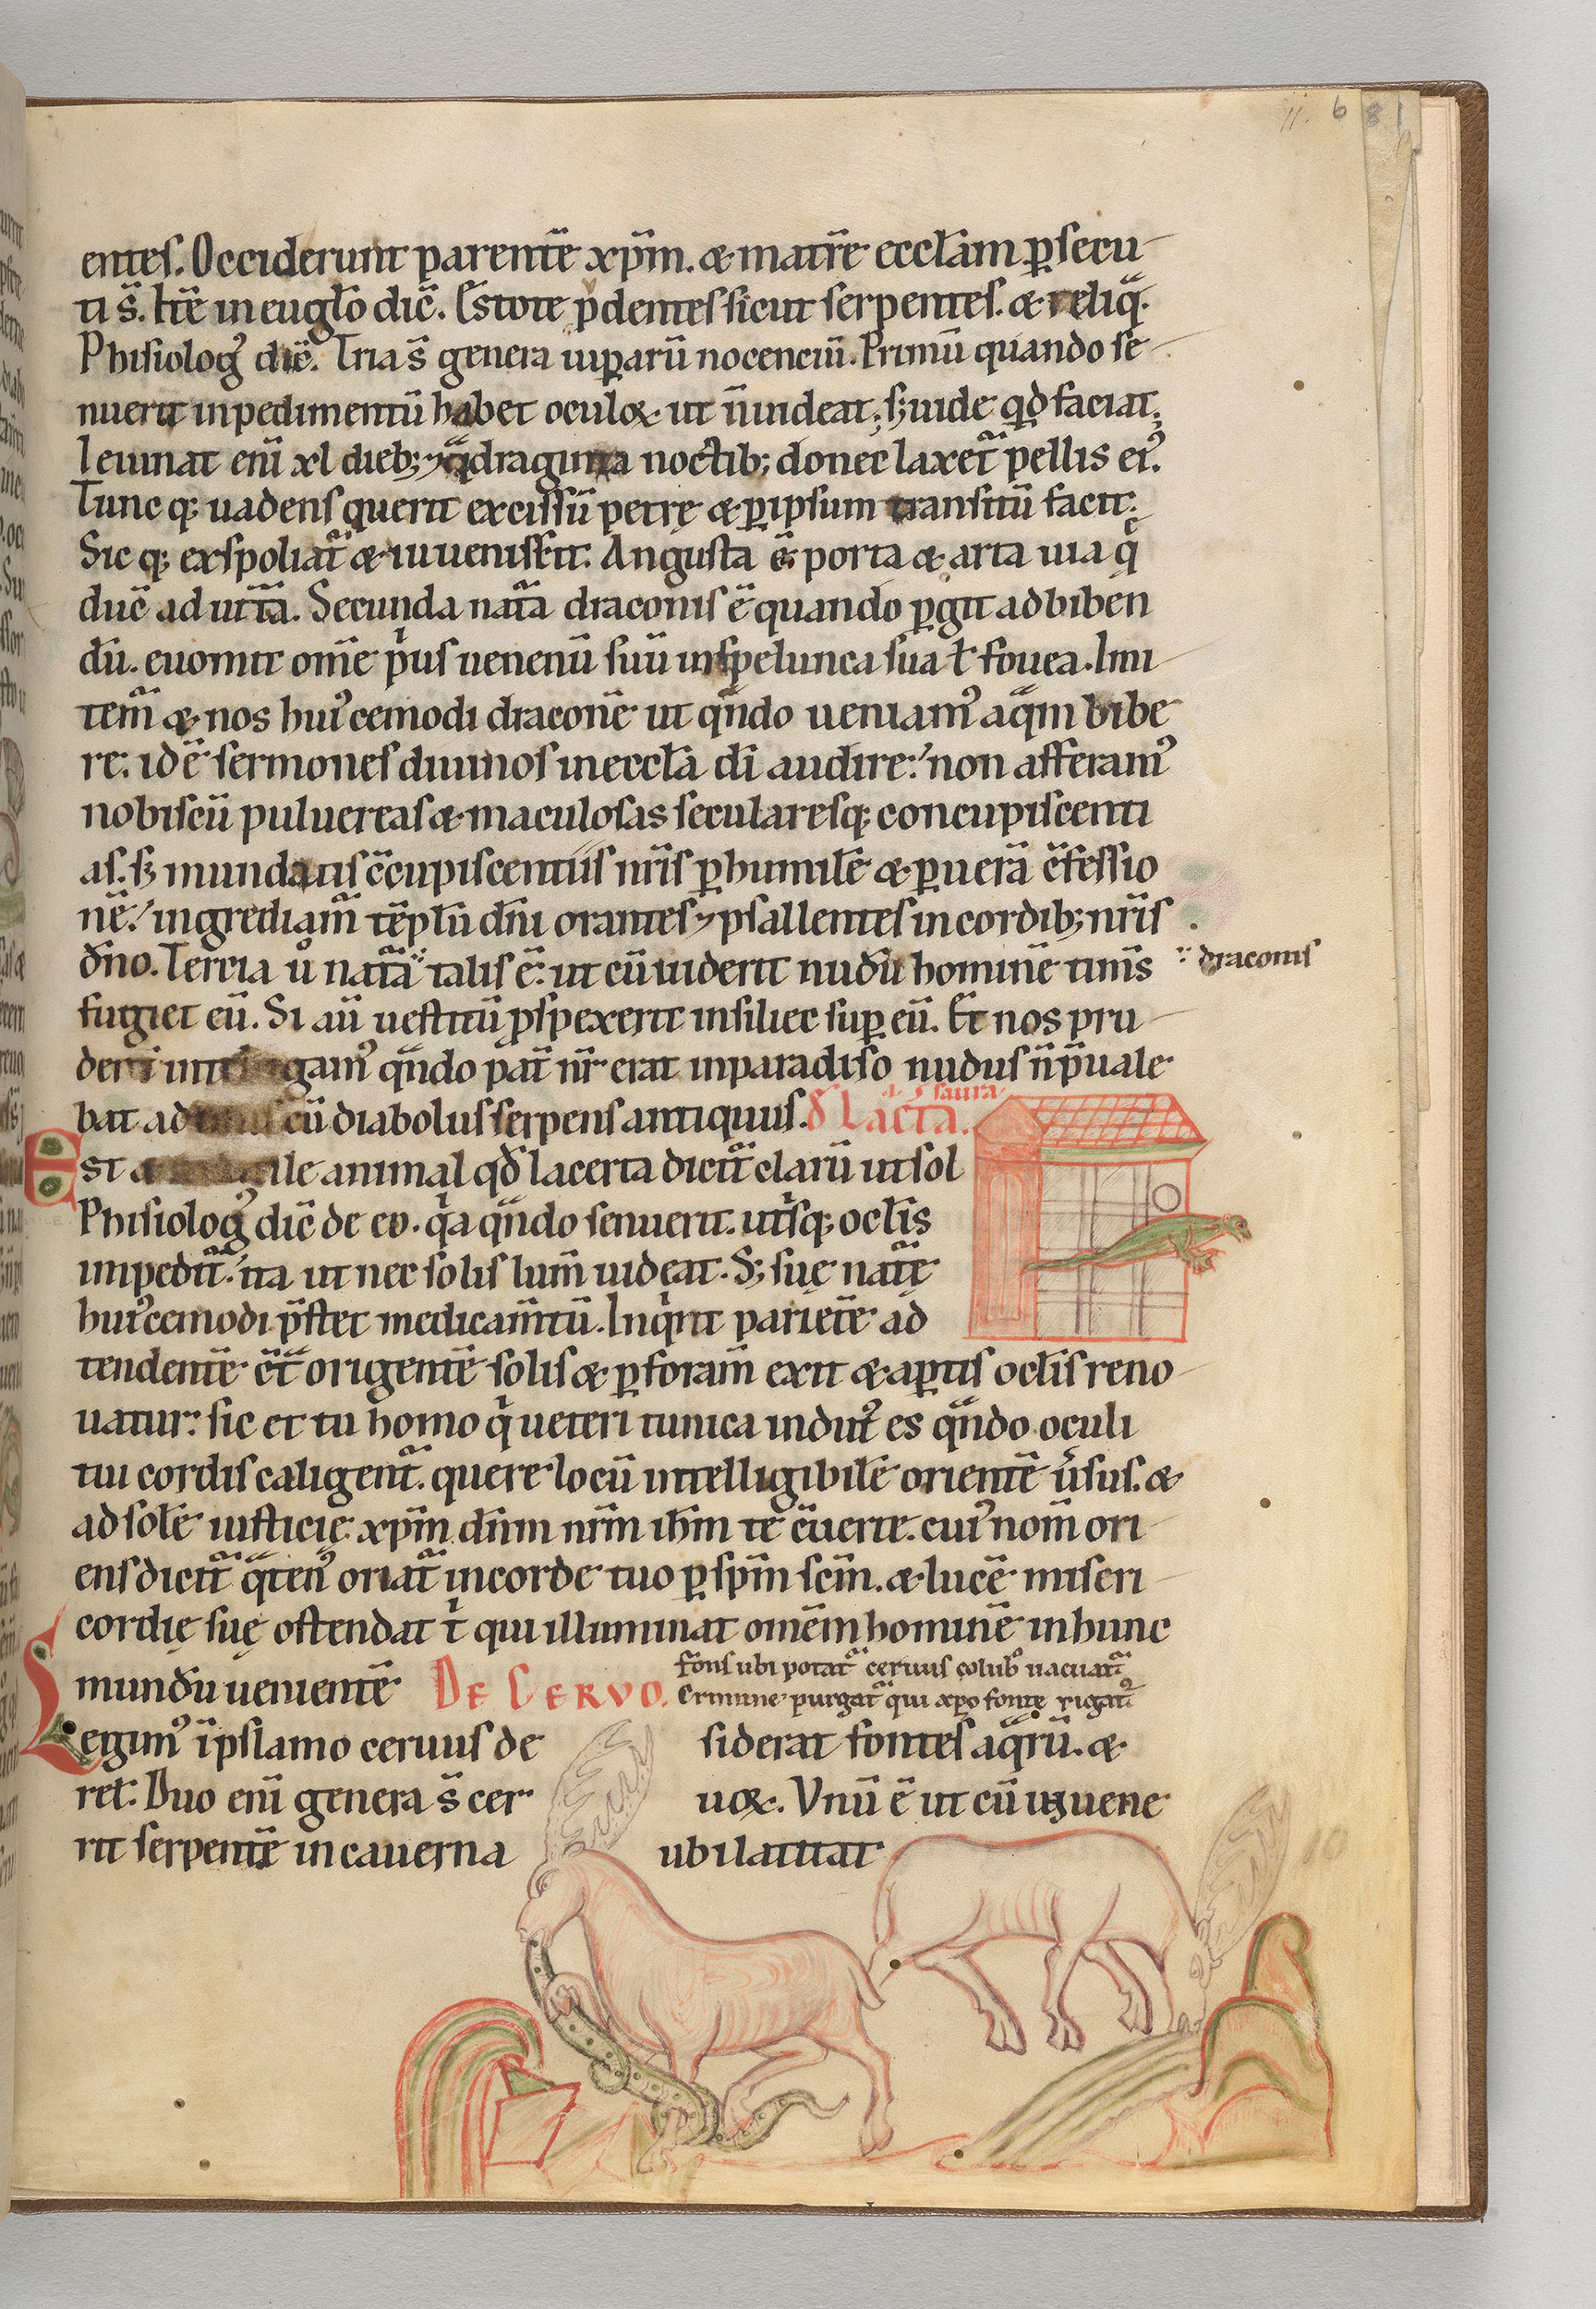 11. 6 81
entes. Occiderunt parentē xp̄m. & matrē eccłam p̱secu
ti s̄. Itē in eugło dic̄. Estote p̄dentes sicut serpentes. & reliq̄.
Phisiologꝰ dic̄. Tria s̄ genera uip̱arū nocenciū. Primū quando se
nuerit inpedimentū habet oculoꝝ ut n̄ uideat; sꝫ uide qd̄ faciat;
Ieiunat eni̅ xl dieb; ⁊ qᷓdraginta noctib; donec laxetᷓ pellis eiꝰ.
Tunc q; uadens querit excissū petrę & p̱ ipsum transitū facit;
Sic q; exspoliatᷓ & iuueniscit. Angusta ē porta & arta uia q̄
duc̄ ad uitā. Secunda natᷓa draconis ē quando p̱git ad biben
dū. euomit om̄e pͥus uenenū suū in spelunca sua ł fouea. Imi
temᷓ & nos huiꝰcemodi draconē ut qn̄do ueniamꝰ aqᷓm bibe
re. id ē sermones diuinos in eccła dī audire. non afferamꝰ
nobiscū puluereas & maculosas secularesq; concupiscenti
as. sꝫ mundatis c̄cupiscentiis nr̄is p̱ humilē & p̱ uerā c̄fessio
nē. ingrediamᷓ tēplū dn̄i orantes ⁊ psallentes in cordib; nr̄is
dn̄o. Tercia uͦ natᷓa talis ē. ut cū uiderit nudū hominē timēs
draconis
fugiet eū. Si aū uestitū ꝓspexerit insiliet sup̱ eū. Et nos pru
denti gamꝰ qn̄do pat̄ nr̄ erat in paradiso nudus n̄ p̄uale
bat ad cū diabolus serpens antiquus. D̄ Lacᵗa.
saura
Est ile animal qd̄ lacerta dicitᷓ clarū ut sol
Phisiologꝰ dic̄ de eo. qͥa qn̄do senuerit. utͥsq; ocłis
impedit̄. ita ut nec solis lum̄ uideat. S; suę natᷓę
huiꝰcemodi p̄stet medicam̄tū. Inqͥrit parietē ad
tendentē c̄t̄ origentē solis & p̱ foram̄ exit & ap̱tis ocłis reno
uatur. sic et tu homo qͥ ueteri tunica indutꝰ es qn̄do oculi
tui cordis caligentᷓ. quere locū intelligibilē orientē ūsus. &
ad solē iusticię xp̄m dn̄m nr̄m ih̄m te c̄uerte. cuiꝰ nom̄ ori
ens dicitᷓ qᷓtenꝰ oriatᷓ in corde tuo p̱ sp̄m sc̄m. & lucē miseri
cordię suę ostendat tͥ qui illuminat om̄em hominē in hunc
mundū uenientē DE CERVO.
Fons ubi potatᷓ ceruus colubͦ uacuatᷓ
Crimine purgatᷓ qui xp̄o fonte rigatᷣ
Legimꝰ ī pslamo ceruus de siderat fontes aqᷓrū. &
ret. Duo eni̅ genera s̄ cer uoꝝ. Vnū ē ut cū inuene
rit serpentē in cauerna ubi latitat
10